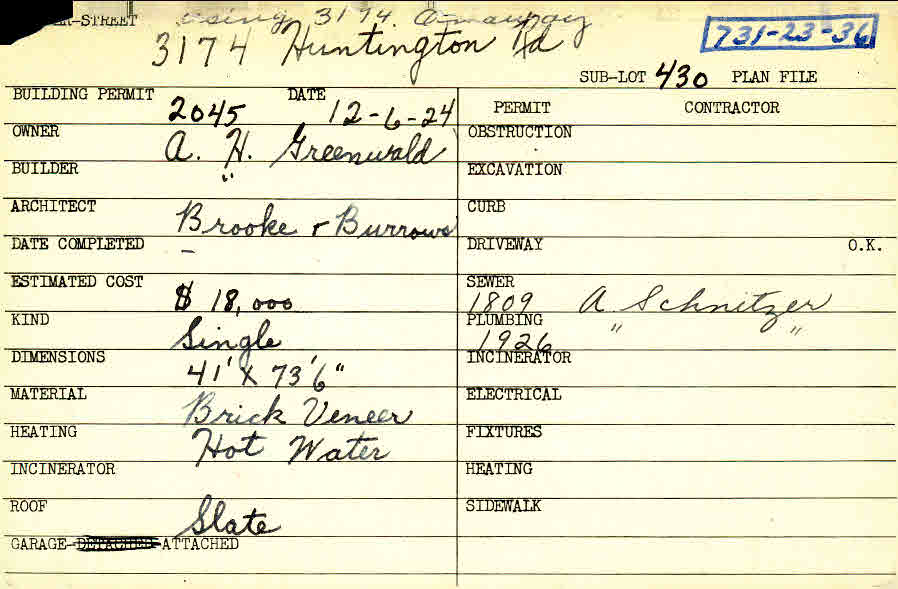 ER-STREET using 3174
3174 Huntington Rd 731-23-36
SUB-LOT 430 PLAN FILE
BUILDING PERMIT 2045 DATE 12-6-24
OWNER A. H. Greenwald
BUILDER "
ARCHITECT Brooke & Burrows
DATE COMPLETED –
ESTIMATED COST $ 18,000
KIND Single
DIMENSIONS 41' x 73'6"
MATERIAL Brick Veneer
HEATING Hot Water
INCINERATOR
ROOF Slate
GARAGE-DETACHED-ATTACHED
PERMIT CONTRACTOR
OBSTRUCTION
EXCAVATION
CURB
DRIVEWAY O.K.
SEWER 1809 A Schnitzer
PLUMBING 1926 " "
INCINERATOR
ELECTRICAL
FIXTURES
HEATING
SIDEWALK